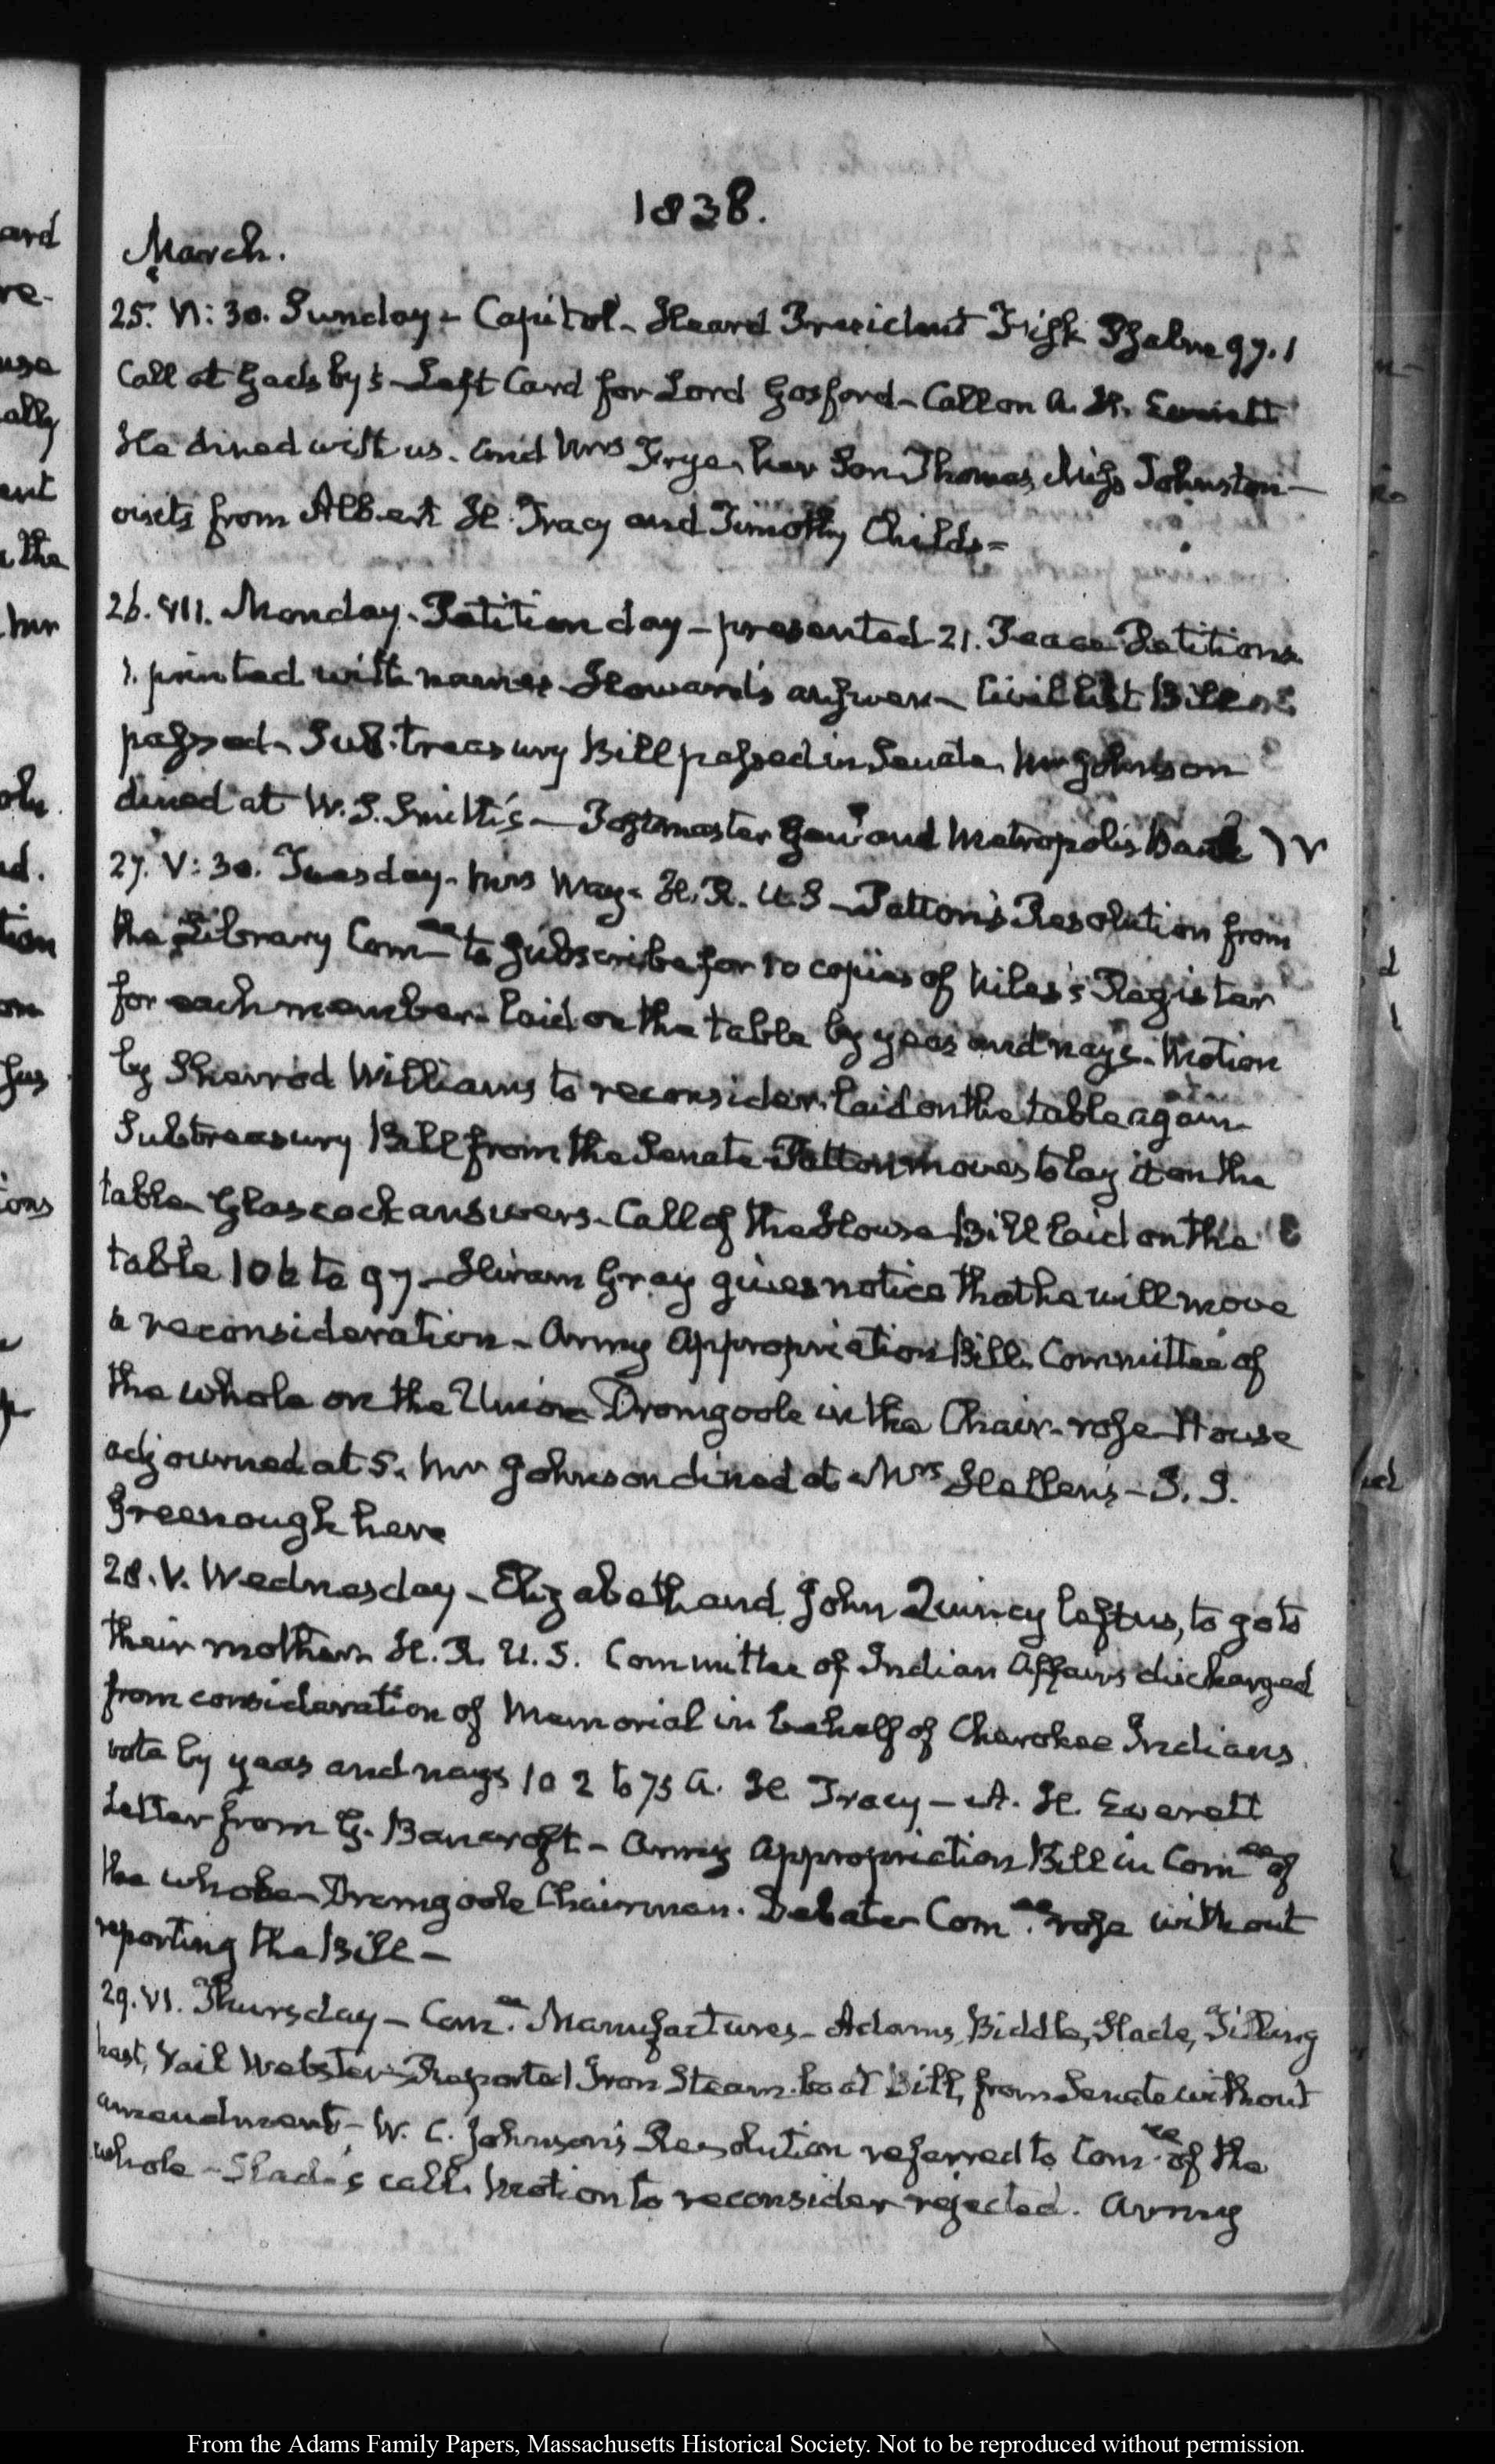 1838.
March.
25. VI:30. Sunday - Capitol - Heard President Fisk Psalm 97.1
Call at Gadsby's - Left Card for Lord Gosford - Call on A. H. Everett
He dined with us. and Mrs Frye, her Son Thomas, Miss Johnston -
visits from Albert H. Tracy and Timothy Childs -
26. VII. Monday. Petition day - presented 21. Peace Petitions
1. printed with names Howard's answer - Civil list Bill
passed - Sub-treasury Bill passed in Senate. Mr Johnson
dined at W. S. Smith's - Postmaster Genl and Metropolis Bank
27. V:30. Tuesday - Mrs Way - H. R. U.S - Patton's Resolution from
the Library Comee to subscribe for 10 copies of Niles's Register
for each member - laid on the table by yeas and nays - Motion
by Sherrod Williams to reconsider. laid on the table again -
Subtreasury Bill from the Senate Patton moves to lay it on the
table - Glascock answers - Call of the House Bill laid on the
table 106 to 97 - Hiram Gray gives notice that he will move
a reconsideration - Army Appropriation Bill. Committee of
the whole on the Union Dromgoole in the Chair - rose House
adjourned at 5. Mr Johnson dined at Mrs Hellen's - 
Greenough here
28. V. Wednesday - Elizabeth and John Quincy left us, to go to
their mother. H. R. U.S. Committee of Indian Affairs discharged
from consideration of Memorial in behalf of Cherokee Indians
vote by yeas and nays 102 to 75 A. H Tracy - A. H. Everett
Letter from G. Bancroft - Army Appropriation Bill in Comee of
the whole - Dromgoole Chairman. Debate - Comee rose without
reporting the Bill -
29. VI. Thursday - Comee Manufactures - Adams, Biddle, Slade, Tilling
hast, Vail Webster - Reported Iron Steam-boat Bill, from Senate without
amendment - W. C. Johnson's Resolution referred to Comee of the
whole - Slade's call. Motion to reconsider rejected. Army
From the Adams Family Papers, Massachusetts Historical Society. Not to be reproduced without permission.